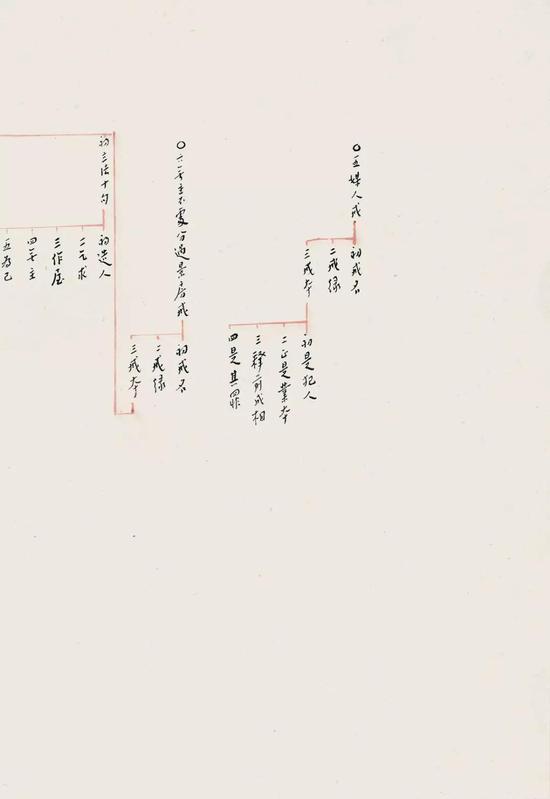 ○五媒人戒
初戒名
二戒缘
三戒本
初是犯人
二正是業本
三釋前成相
四是其罪
○六無主不處分過量房戒
初戒名
二戒缘
三戒本
初三法十句
初造人
二乞求
三作屋
四無主
五為己